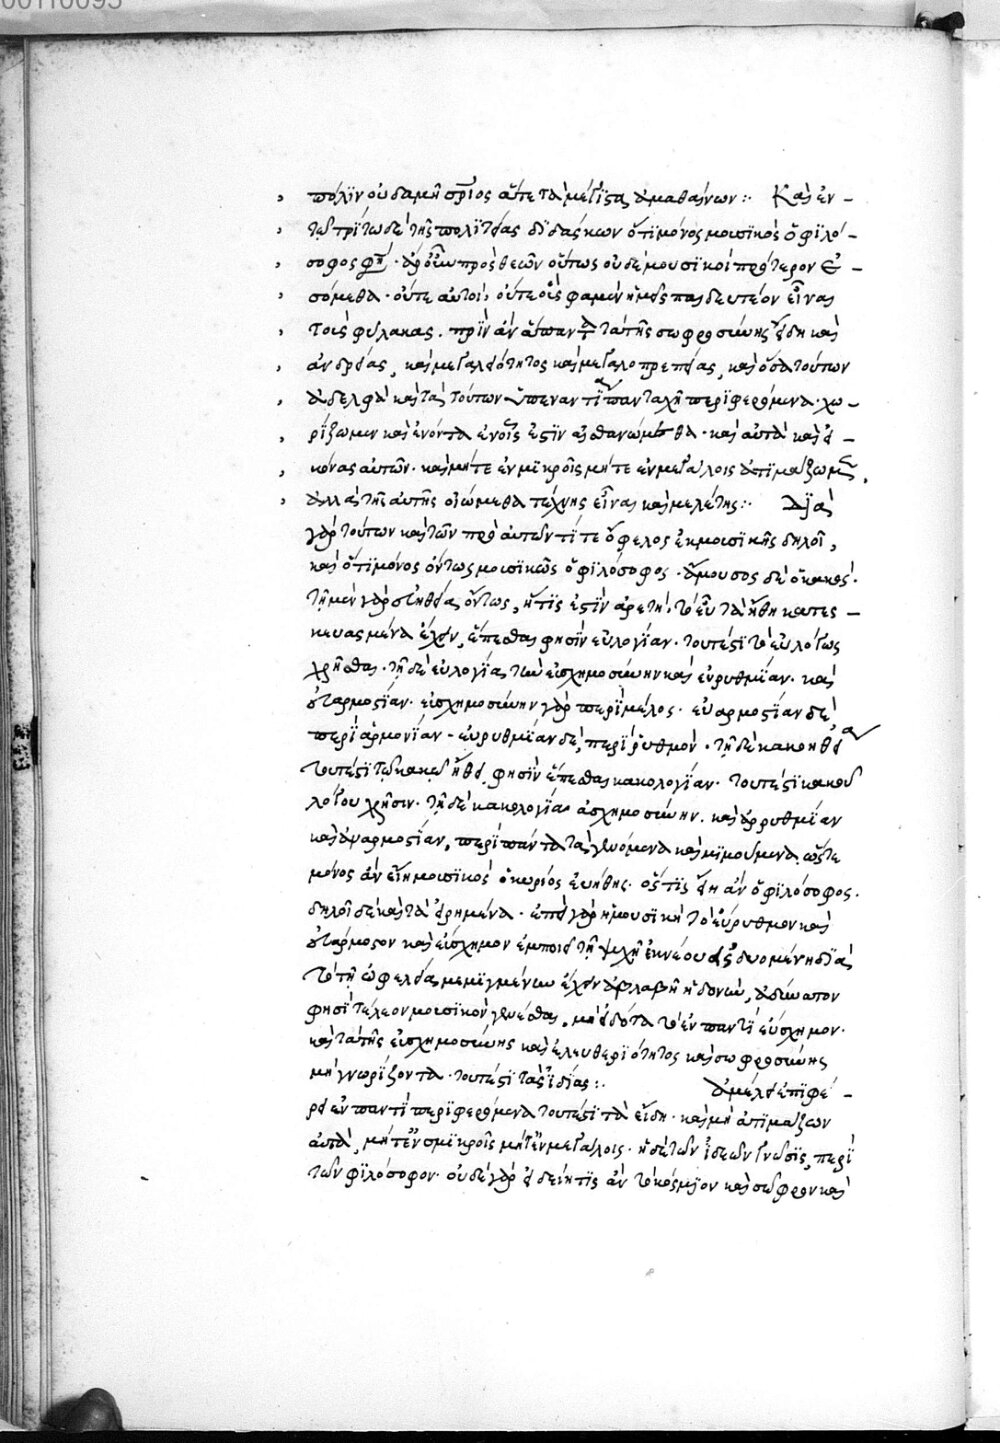 00110095
πόλιν οὐδαμῆ σωτήριος ἅτε τὰ μέγιστα ἀμαθαίνων :· Καὶ ἐν –
τῷ τρίτῳ δὲ τῆς πολιτείας διδάσκων ὅτι μόνος μουσικὸς ὁ φιλό –
σοφος φησί · ἆρ' οὖν πρὸς θεῶν οὕτως οὐδὲ μουσικοὶ πρότερον ἐ –
σόμεθα · οὔτε αὐτοί, οὔτε οὕς φαμεν ἡμῖν παιδευτέον εἶναι
τοὺς φύλακας · πρὶν ἂν ἅπαντα τὰ τῆς σωφροσύνης εἴδη καὶ
ἀνδρείας, καὶ μεγαλειότητος καὶ μεγαλοπρεπείας, καὶ ὅσα τούτων
ἀδελφὰ καὶ τὰ τούτων ὑπεναντία πανταχῆ περιφερόμενα · χω –
ρίζωμεν καὶ ἐνόντα ἐν οἷς ἐστὶν αἰσθανώμεθα · καὶ αὐτὰ καὶ εἰ –
κόνας αὐτῶν · καὶ μήτε ἐν μικροῖς μήτε ἐν μεγάλοις ἀτιμάζωμεν,
ἀλλὰ τῆς αὐτῆς οἰώμεθα τέχνης εἶναι καὶ μελέτης :· Διὰ
γὰρ τούτων καὶ τῶν πρὸ αὐτῶν τί τε ὄφελος ἐκ μουσικῆς δηλοῖ,
καὶ ὅτι μόνος ὄντως μουσικὸς ὁ φιλόσοφος · ἄμουσος δὲ ὁ κακός ·
τῇ μὲν γὰρ εὐηθείᾳ ὄντως, ἥτις ἐστὶν ἀρετὴ, τὸ εὖ τὰ ἤθη κατεσ –
κευασμένα ἔχειν, ἕπεσθαι φησὶν εὐλογίαν · τουτέστι τὸ εὐλόγως
χρῆσθαι · τῇ δὲ εὐλογίᾳ τὴν εὐσχημοσύνην καὶ εὐρυθμίαν · καὶ
εὐαρμοστίαν · εὐσχημοσύνην γὰρ περὶ μέλος · εὐαρμοστίαν δὲ,
περὶ ἁρμονίαν – εὐρυθμίαν δὲ, περὶ ῥυθμόν · τῇ δὲ κακοηθείᾳ
τουτέστι τῷ κακῷ ἤθει φησὶν ἕπεσθαι κακολογίαν · τουτέστι κακοῦ
λόγου χρῆσιν · τῇ δὲ κακολογίᾳ ἀσχημοσύνην · καὶ ἀρρυθμίαν
καὶ ἀναρμοστίαν, περὶ πάντα τὰ γενόμενα καὶ μιμούμενα, ὥστε
μόνος ἂν εἴη μουσικὸς ὁ κυρίως εὐήθης · ὅστις εἴη ἂν ὁ φιλόσοφος ·
δηλοῖ δὲ καὶ τὰ εἰρημένα · ἐπεὶ γὰρ ἡ μουσικὴ τὸ εὔρυθμον καὶ
εὐάρμοστον καὶ εὔσχημον ἐμποιεῖ τῇ ψυχῇ ἐκ νέου εἰσδυομένη διὰ
τὸ τῇ ὠφελείᾳ μεμιγμένην ἔχειν ἀβλαβῆ ἡδονὴν, ἀδύνατον
φησὶ τέλεον μουσικὸν γενέσθαι, μὴ εἰδότα τὸ ἐν παντὶ εὔσχημον ·
καὶ τὰ τῆς εὐσχημοσύνης καὶ ἐλευθεριότητος καὶ σωφροσύνης
μὴ γνωρίζοντα · τουτέστι τὰς ἰδίας :· ἀμέλει ἐπιφέ –
ρει ἐν παντὶ περιφερόμενα τουτέστι τὰ εἴδη · καὶ μὴ ἀτιμάζων
αὐτὰ, μήτ' ἐν σμικροῖς μήτ' ἐν μεγάλοις · ἡ δὲ τῶν ἰδεῶν γνῶσις, περὶ
τὸν φιλόσοφον · οὐδὲ γὰρ εἰδείη τις ἂν τὸ κόσμιον καὶ σῶφρον καὶ